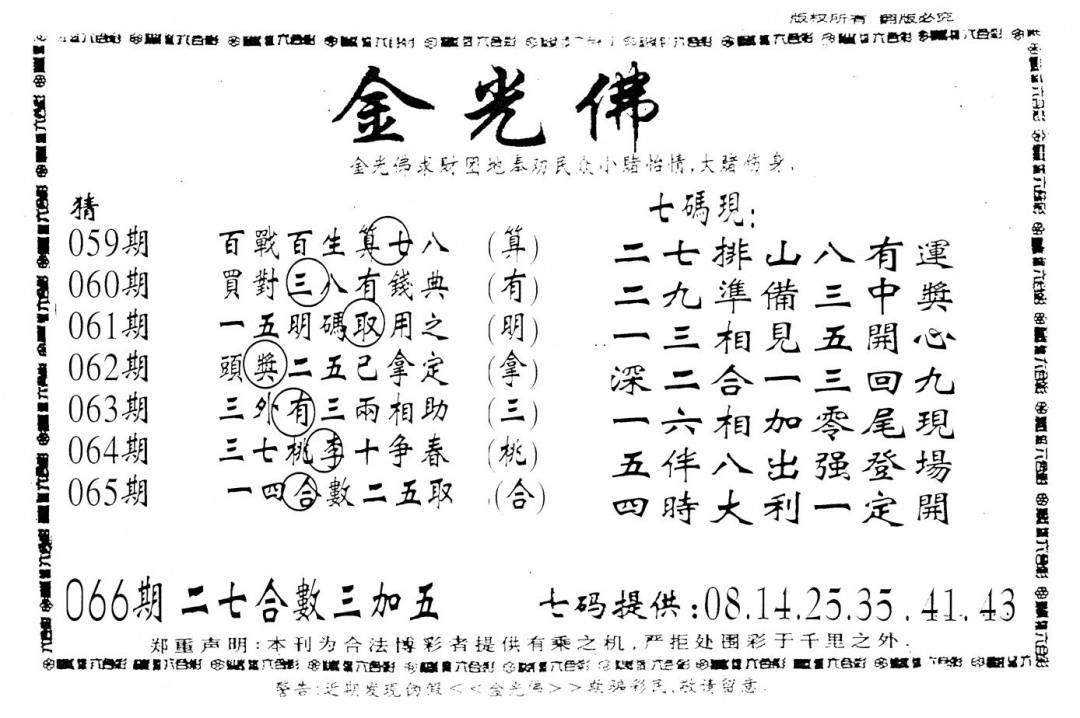 版权所有 翻版必究
金光佛
金光佛求财团地奉劝民众小赌怡情,大赌伤身.
猜
059期 百戰百生算七八 (算)
060期 買對三八有錢典 (有)
061期 一五明碼取用之 (明)
062期 頭奬二五已拿定 (拿)
063期 三外有三兩相助 (三)
064期 三七桃李十争春 (桃)
065期 一四合數二五取 (合)
七碼現:
二七排山八有運
二九準備三中奬
一三相見五開心
深二合一三回九
一六相加零尾現
五伴八出强登場
四時大利一定開
066期 二七合數三加五
七码提供:08.14.25.35.41.43
郑重声明:本刊为合法博彩者提供有乘之机,严拒处围彩于千里之外.
警告:近期发现伪假<<金光佛>>欺骗彩民,敬请留意.